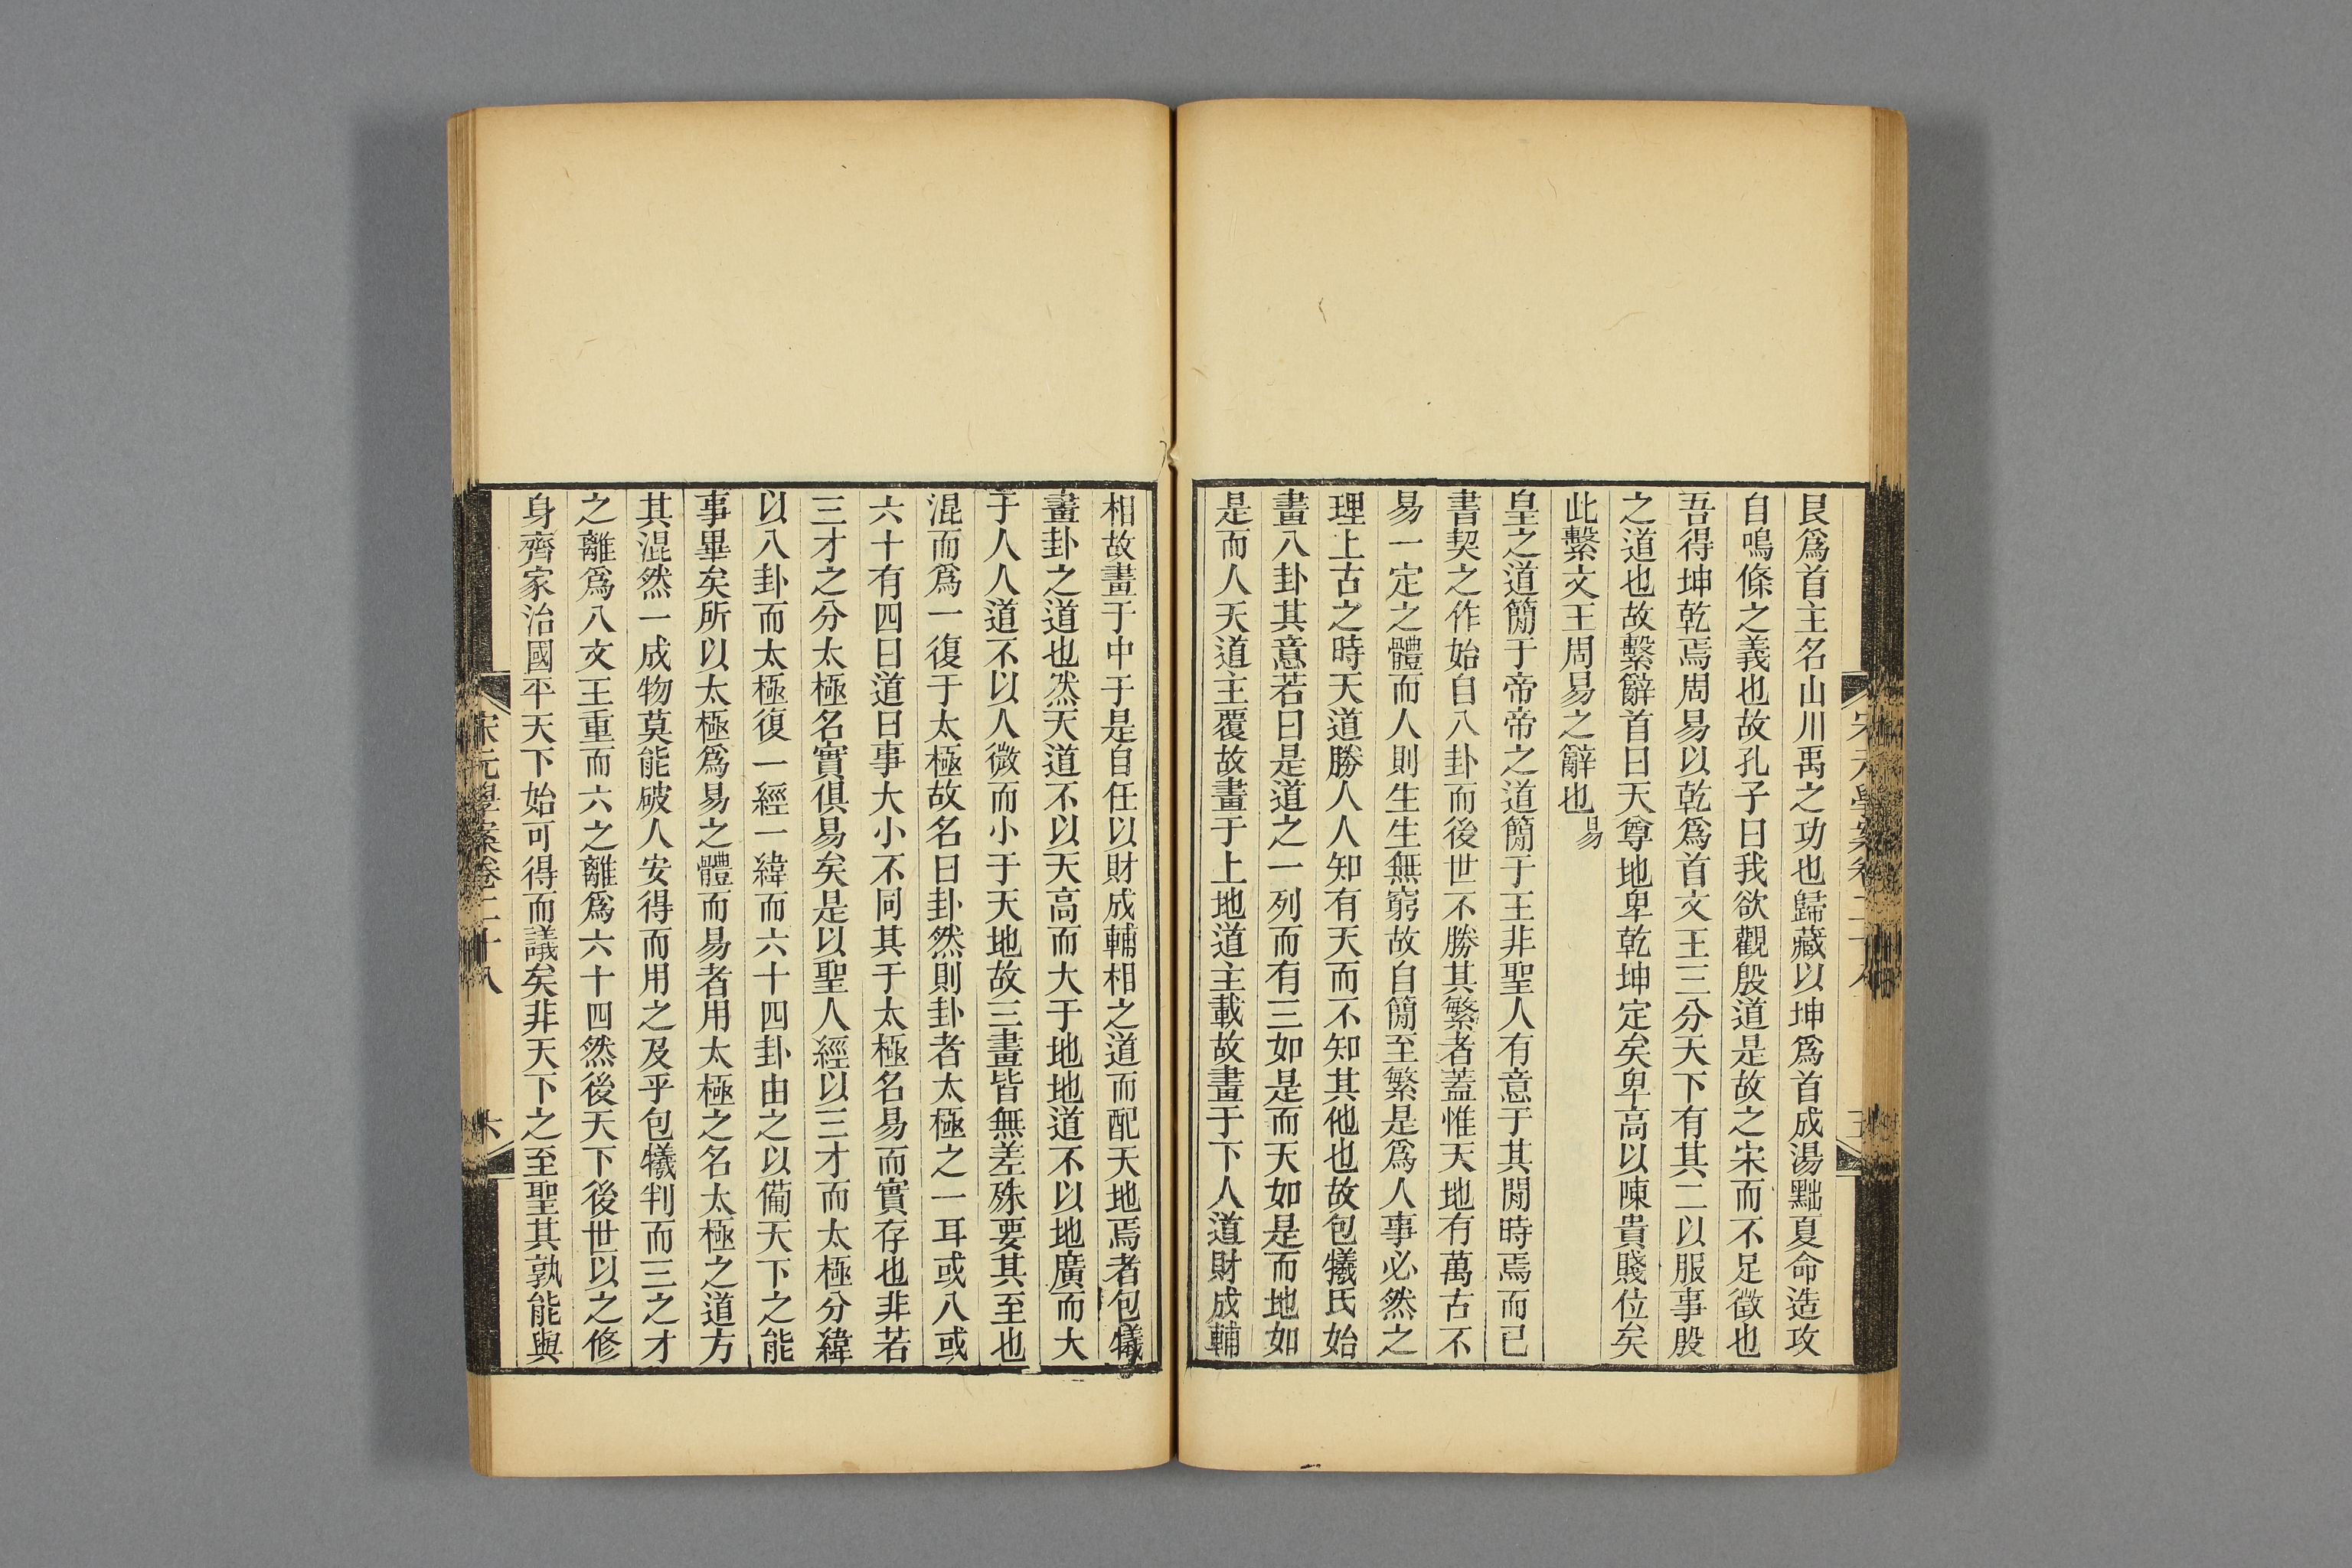 艮爲首主名山川禹之功也歸藏以坤爲首成湯黜夏命造攻
自鳴條之義也故孔子曰我欲觀殷道是故之宋而不足徵也
吾得坤乾焉周易以乾爲首文王三分天下有其二以服事殷
之道也故繫辭首曰天尊地卑乾坤定矣卑高以陳貴賤位矣
此繫文王周易之辭也易
皇之道簡于帝帝之道簡于王非聖人有意于其閒時焉而已
書契之作始自八卦而後世不勝其繁者蓋惟天地有萬古不
易一定之體而人則生生無窮故自簡至繁是爲人事必然之
理上古之時天道勝人人知有天而不知其他也故包犧氏始
畫八卦其意若曰是道之一列而有三如是而天如是而地如
是而人天道主覆故畫于上地道主載故畫于下人道財成輔
相故畫于中于是自任以財成輔相之道而配天地焉者包犧
畫卦之道也然天道不以天高而大于地地道不以地廣而大
于人人道不以人微而小于天地故三畫皆無差殊要其至也
混而爲一復于太極故名曰卦然則卦者太極之一耳或八或
六十有四曰道曰事大小不同其于太極名易而實存也非若
三才之分太極名實俱易矣是以聖人經以三才而太極分緯
以八卦而太極復一經一緯而六十四卦由之以備天下之能
事畢矣所以太極爲易之體而易者用太極之名太極之道方
其混然一成物莫能破人安得而用之及乎包犧判而三之才
之離爲八文王重而六之離爲六十四然後天下後世以之修
身齊家治國平天下始可得而議矣非天下之至聖其孰能與
宋元學案卷二十八
六